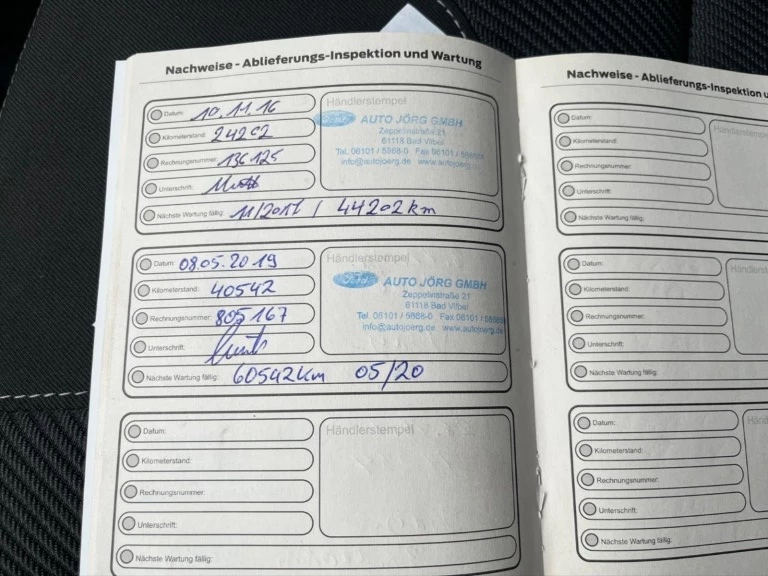 Nachweise - Ablieferungs-Inspektion und Wartung
Datum: 10.11.16
Kilometerstand: 24202
Rechnungsnummer: 136125
Unterschrift:
Nächste Wartung fällig: 11/2017 / 44202km
Händlerstempel
Ford AUTO JÖRG GMBH
Zeppelinstraße 21
61118 Bad Vilbel
Tel. 06101 / 5868-0 Fax 06101 /
info@autojoerg.de www.autojoerg.de
Datum: 08.05.2019
Kilometerstand: 40542
Rechnungsnummer: 805167
Unterschrift:
Nächste Wartung fällig: 60542km 05/20
Händlerstempel
Ford AUTO JÖRG GMBH
Zeppelinstraße 21
61118 Bad Vilbel
Tel. 06101 / 5868-0 Fax 06101 /
info@autojoerg.de www.autojoerg.de
Datum:
Kilometerstand:
Rechnungsnummer:
Unterschrift:
Nächste Wartung fällig:
Händlerstempel
Nachweise - Ablieferungs-Inspektion u
Datum:
Kilometerstand:
Rechnungsnummer:
Unterschrift:
Nächste Wartung fällig:
Händlerstem
Datum:
Kilometerstand:
Rechnungsnummer:
Unterschrift:
Nächste Wartung fällig:
Händlerst
Datum:
Kilometerstand:
Rechnungsnummer:
Unterschrift:
Nächste Wartung fällig:
Händ